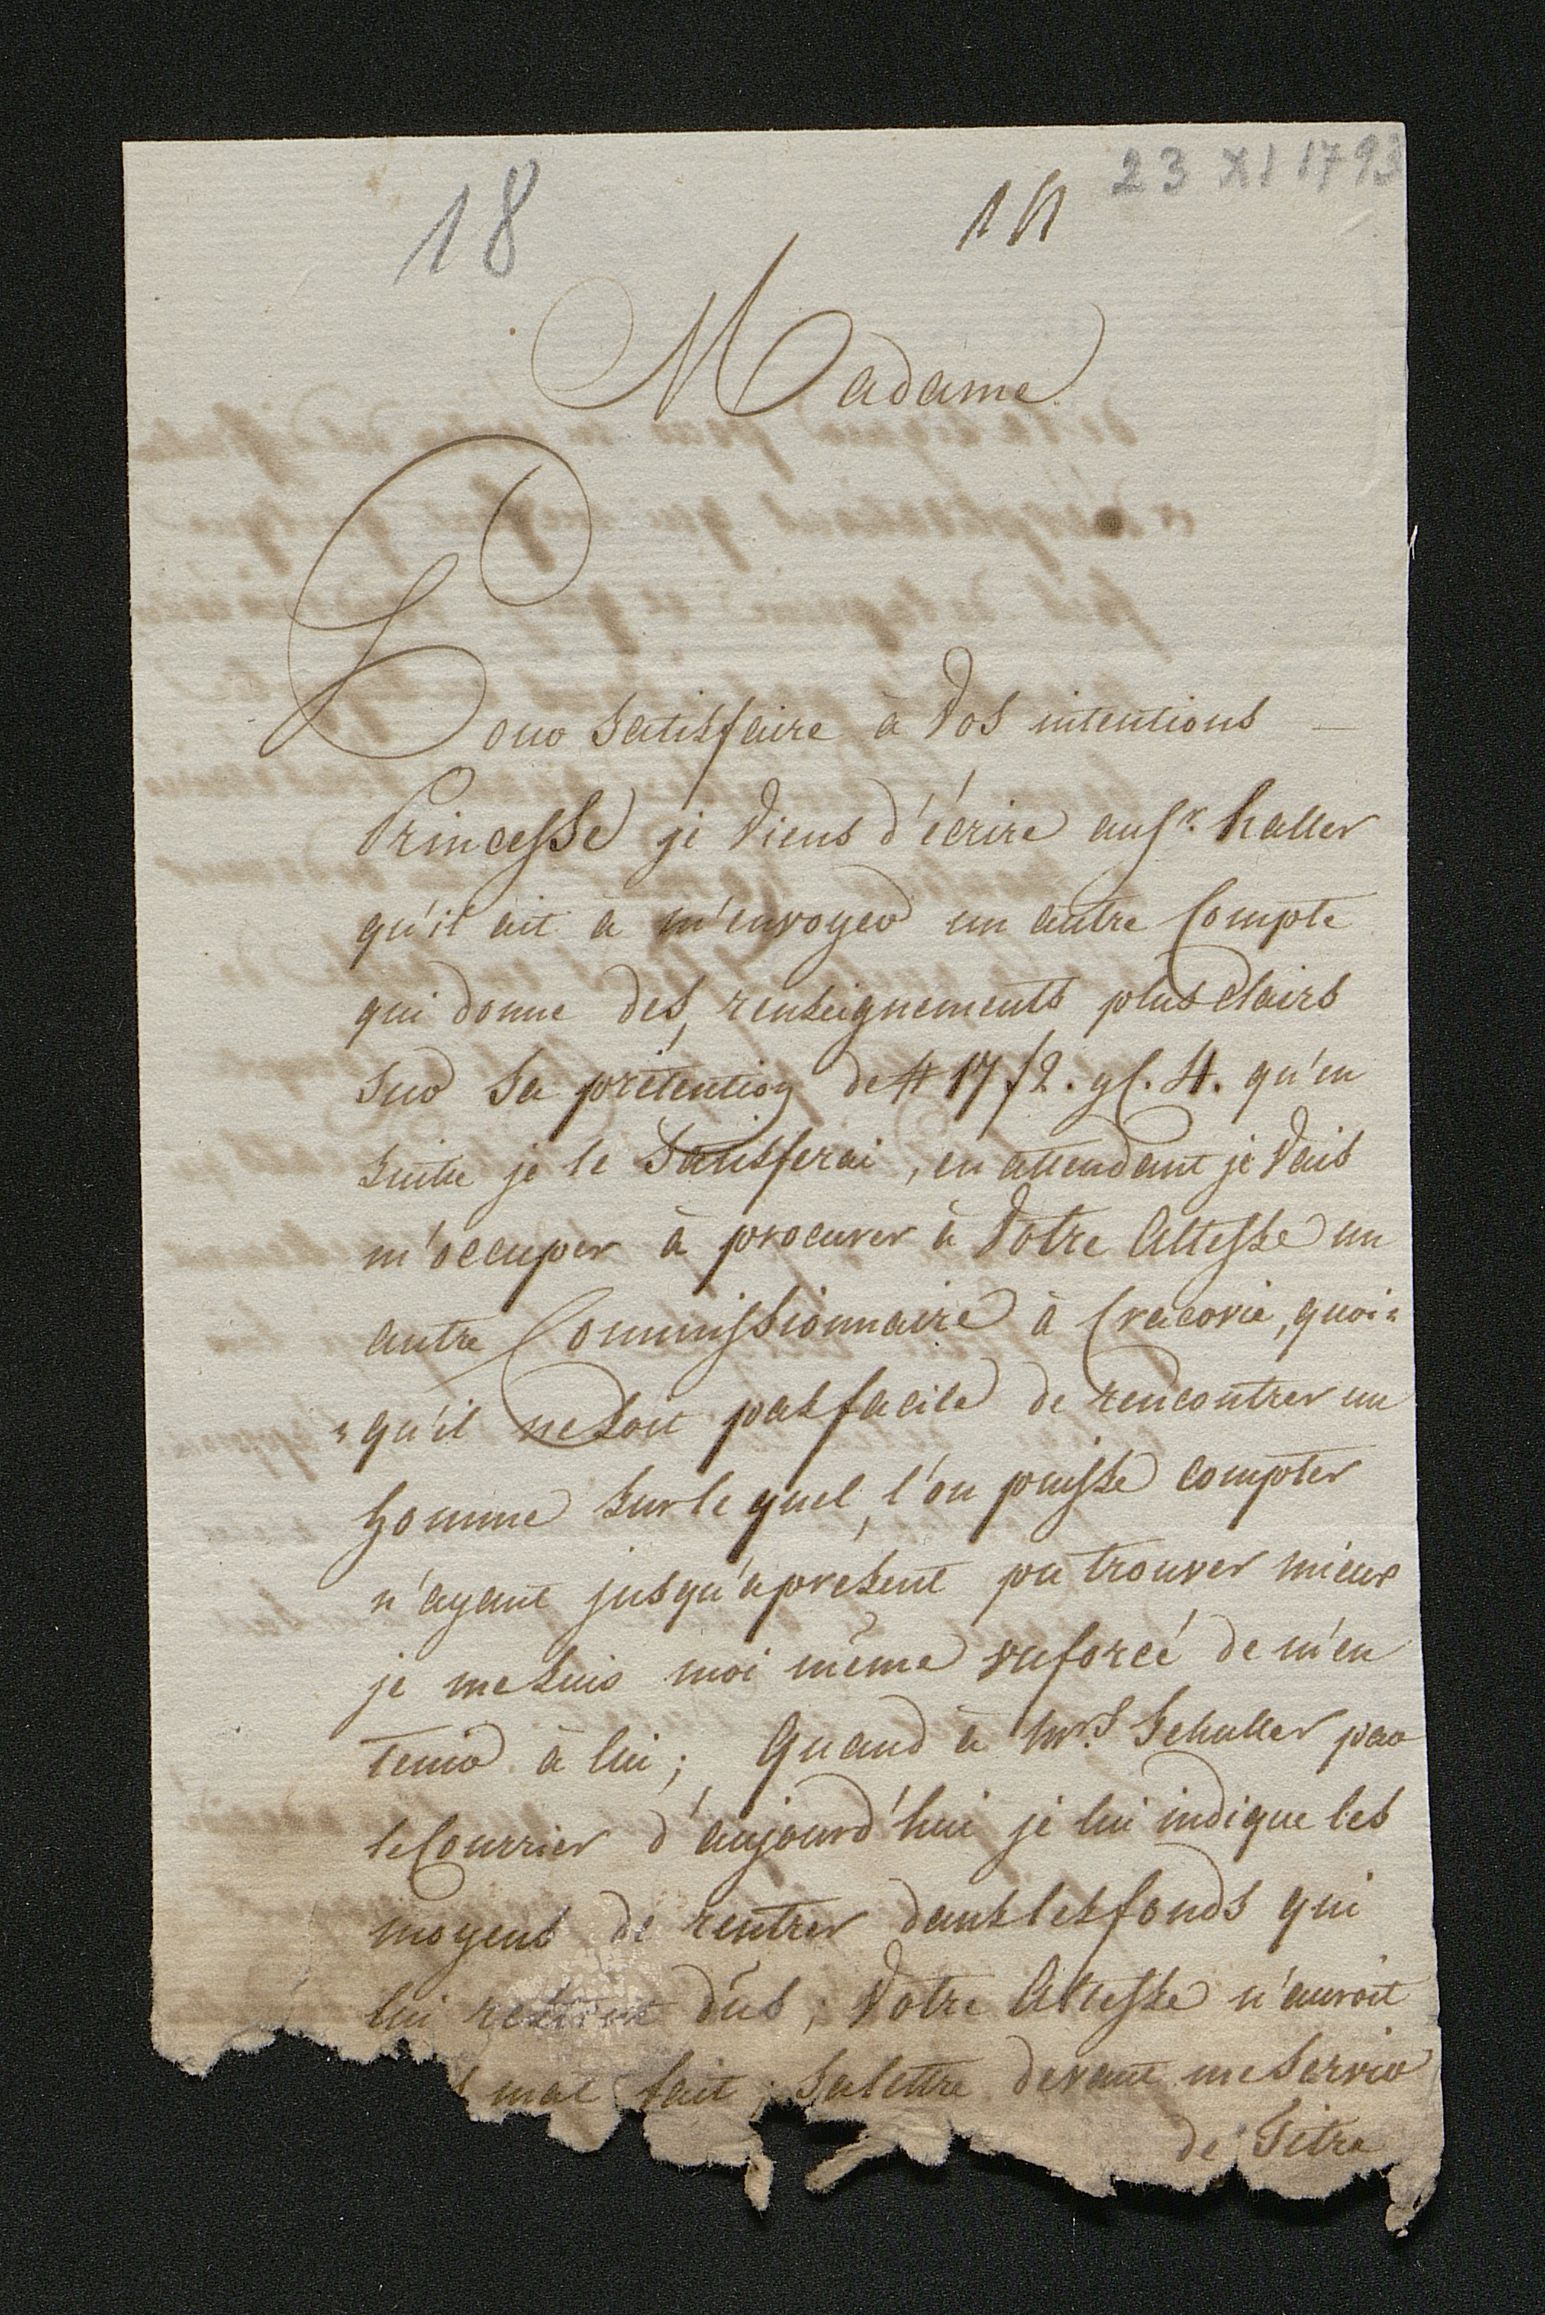 23 XI 1793
18
Madame
Pour satisfaire à Vos intentions
Princesse je Viens d'écrire au Sr. haller
qu'il ait à m'envoyer un autre Compte
qui donne des renseignements plus Clairs
sur sa prétention de # 17 f 2. gl. 4. qu'en
suitte je le Satisferai, en attendant je Vais
m'occuper à procurer à Votre Altesse un
autre Commissionnaire à Cracovie, quoi=
=qu'il ne soit pas facile de rencontrer un
homme sur le quel l'on puisse compter
n'ayant jusqu'apresent pu trouver mieux
je me suis moi même vu forcé de m'en
tenir à lui; Quand à Mrs Schuller par
le Courrier d'aujourd'hui je lui indique les
moyens de rentrer dans les fonds qui
lui restent dûs; Votre Altesse n'auroit
mal fait; sa lettre devant me servir
de Titre